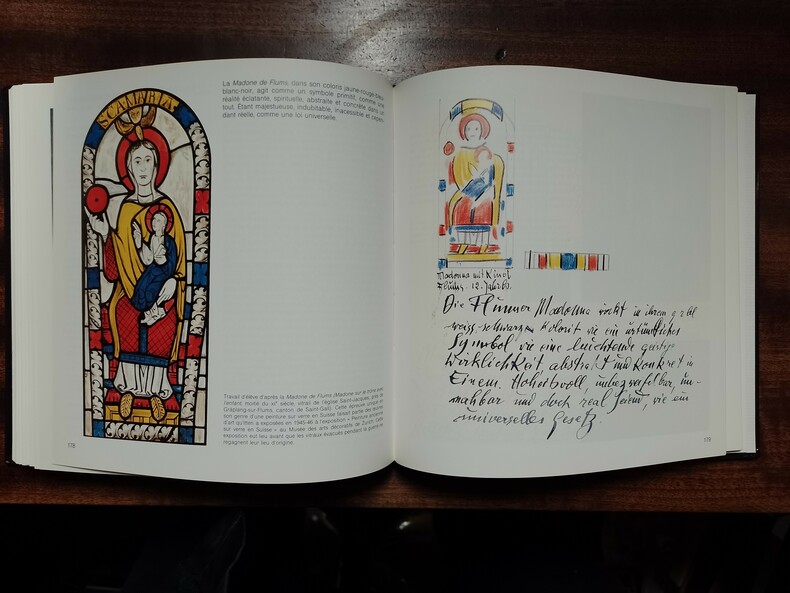 SCA MARIA
La Madone de Flums, dans son coloris jaune-rouge-bleu-
blanc-noir, agit comme un symbole primitif, comme une
réalité éclatante, spirituelle, abstraite et concrète dans un
tout. Etant majestueuse, indubitable, inacessible et cepen-
dant réelle, comme une loi universelle.
Travail d'élève d'après la Madone de Flums (Madone sur le trône avec
l'enfant, moitié du siècle, vitrail de l'église Saint-Jacques, près de
Gräplang-sur-Flums, canton de Saint-Gall). Cette épreuve unique en
son genre d'une peinture sur verre en Suisse faisait partie des œuvres
d'art qu'Itten a exposées en 1945-46 à l'exposition « Peinture
sur verre en Suisse » au Musée des arts décoratifs de Zurich. Cette
exposition eut lieu avant que les vitraux évacués pendant la guerre ne
regagnent leur lieu d'origine.
178
Madonna mit Kind
Flums 12. Jahrh.
Die Flumser Madonna wirkt in ihrem
weiss-schwarzen Kolorit wie ein urtümliches
Symbol wie eine leuchtende geistige
Wirklichkeit, abstrakt und konkret in
Einem. Hoheitsvoll, unbezweifelbar, un-
nahbar und doch real seiend, wie ein
universelles Gesetz.
179